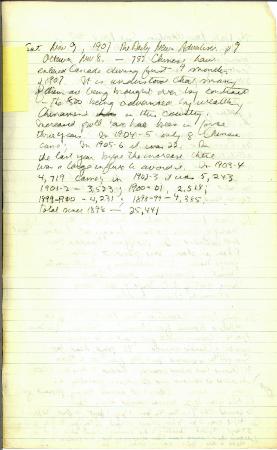 Sat. Nov 9, 1907 The Daily News Advertiser. p 7
Ottawa, Nov 8. — 752 Chinese have
entered Canada during first 9 months
of 1907. It is understood that many
of them are being brought over by contract
— the $500 being advanced by wealthy
Chinamen in this country.
increased poll tax has been in force
three years. In 1904-5 only 8 Chinese
came; In 1905-6 it was 22. In
the last year before the increase there
was a large influx to avoid it. In 1903-4
4,719 came; in 1902-3 it was 5,243
1901-2 — 3,523; 1900-01, 2,518;
1899-1900 — 4,231; 1898-99 — 4,385
Total since 1898 — 25,441